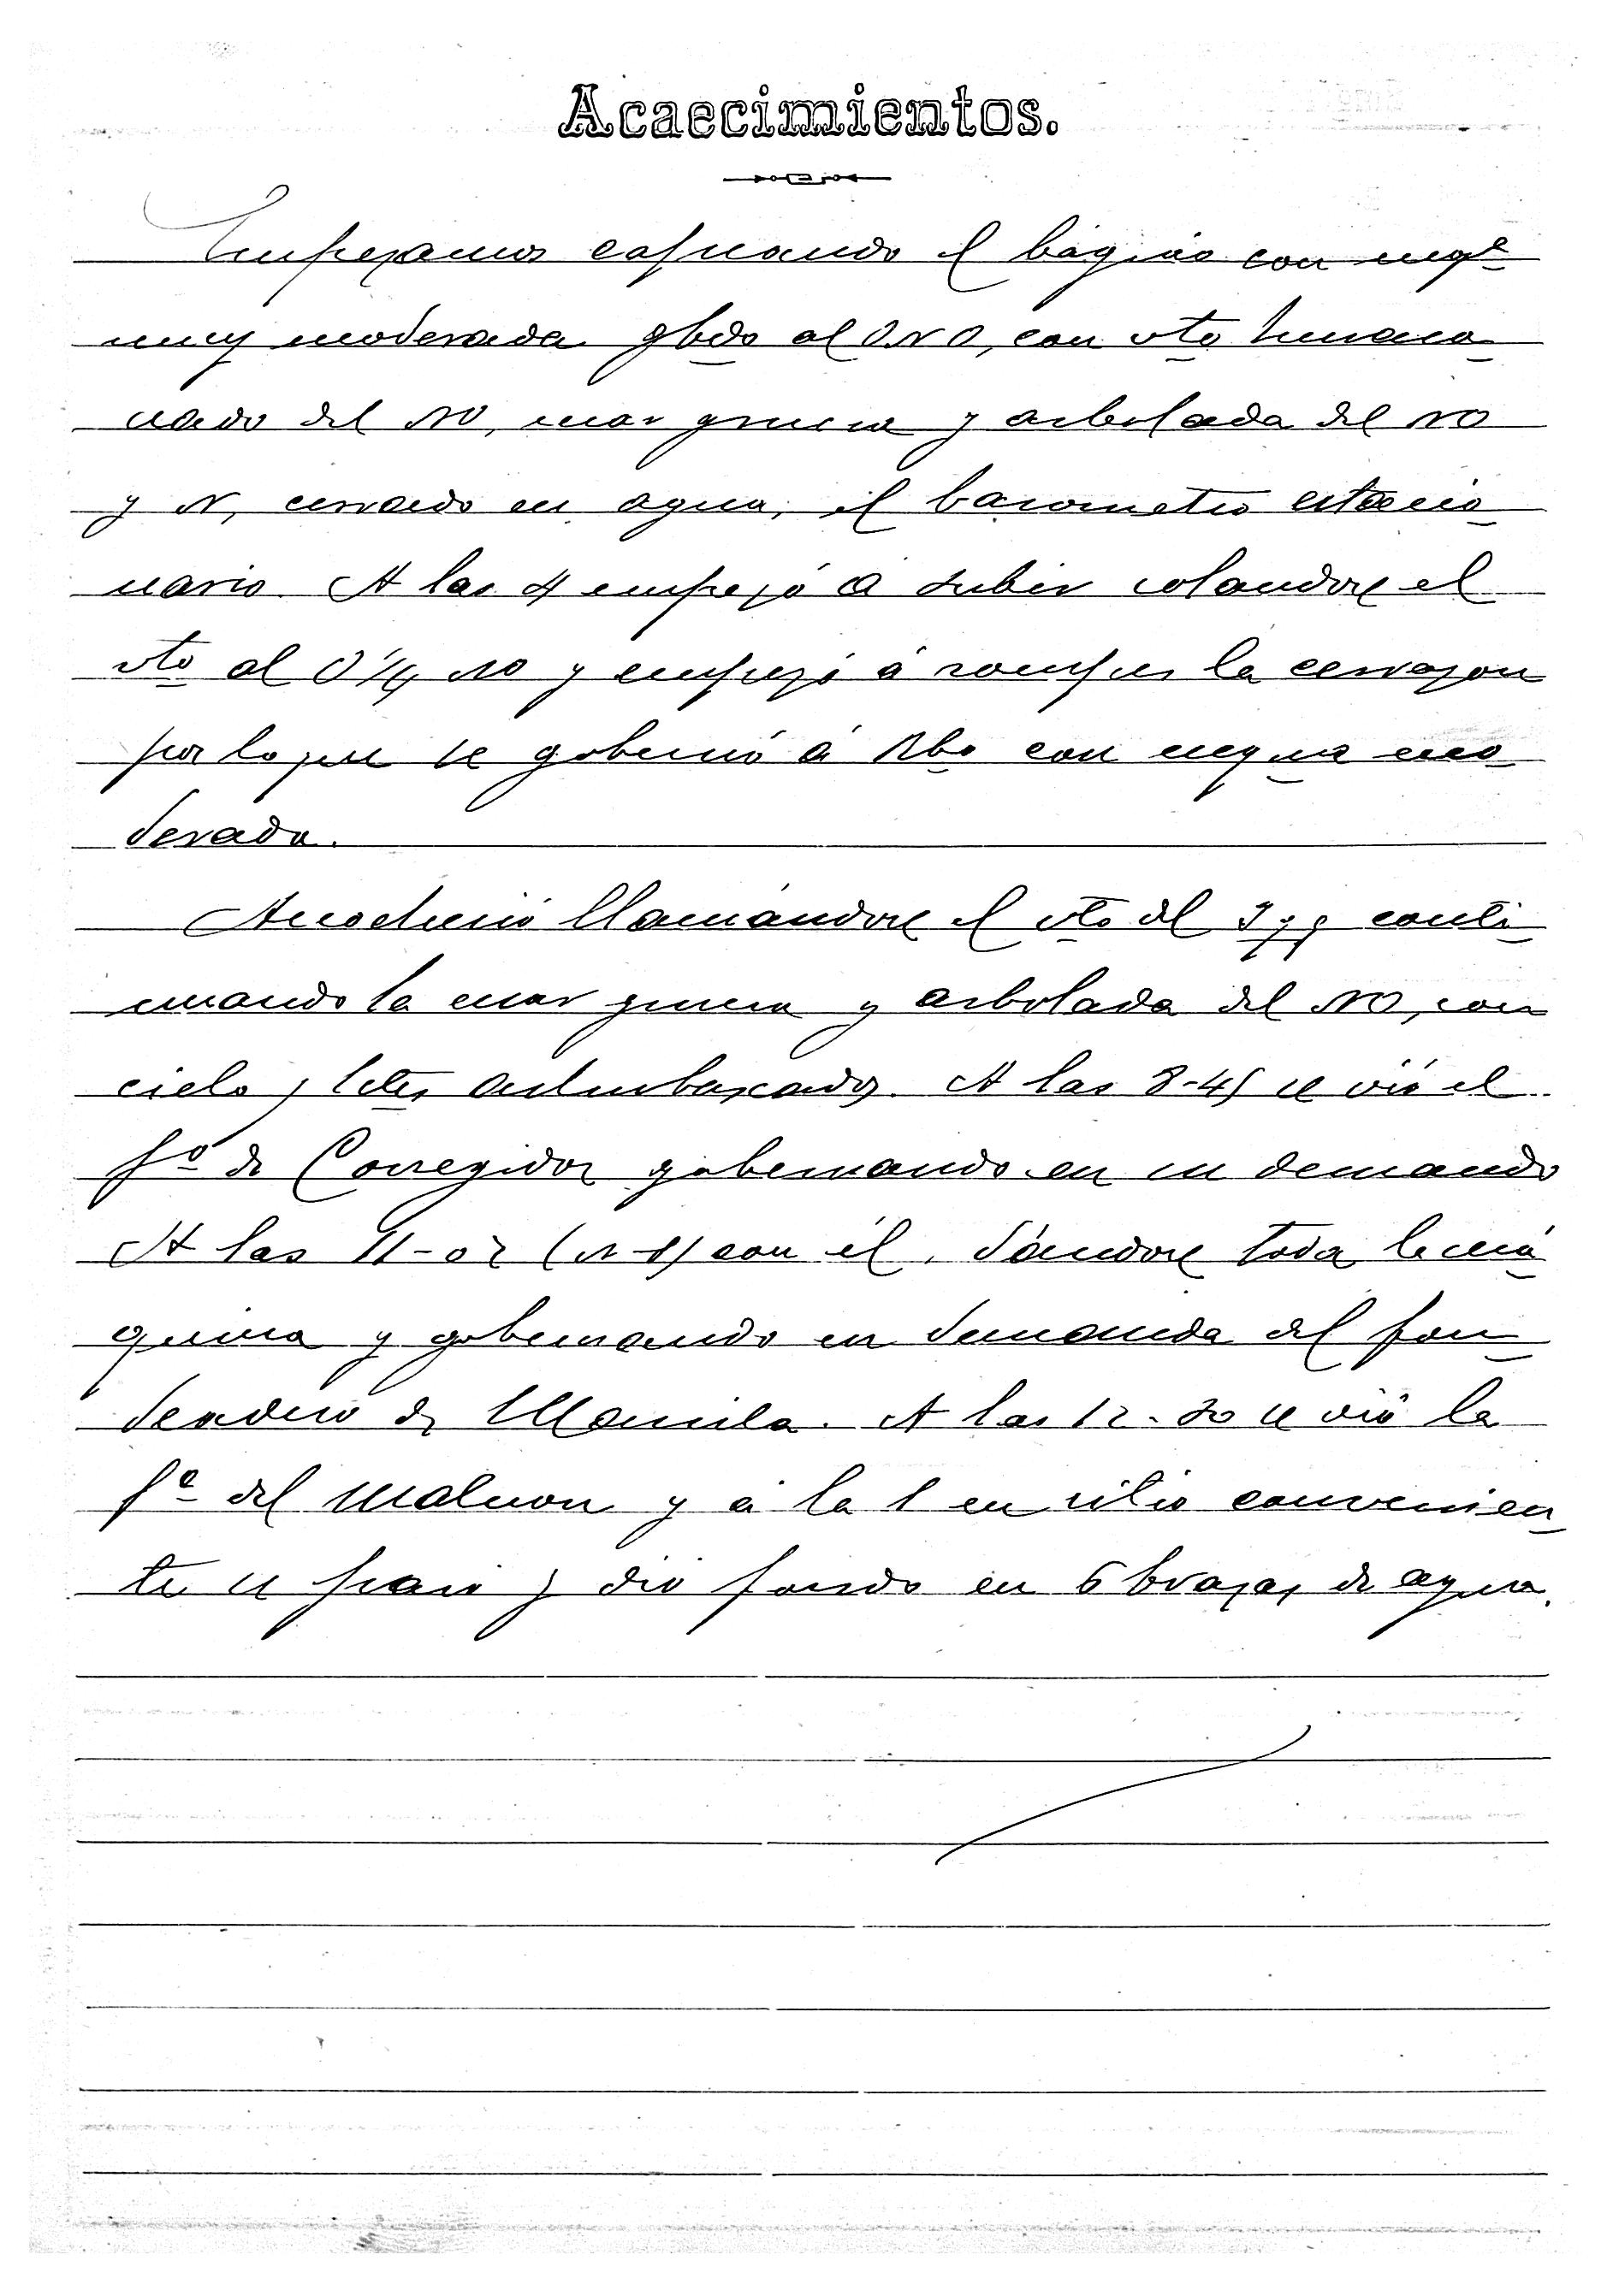 Acaecimientos.
Empezamos capeando el báguio con maqª
muy moderada gbdo al ONO, con vto huraca
nado del NO, mar gruesa y arbolada del NO
y N, cerrado en agua, el barometro estacio
nario. A las 4 empezó á subir rolandose el
vto al O¼NO y empezó á romper la cerrazon
por lo que se gobernó á Rbo con maqna mo
derada.
Anocheció llamándose el vto al conti
nuando la mar gruesa y arbolada del NO, con
cielo y htes achubascados. A las 8-45 se vió el
fº de Corregidor gobernando en su demanda
A las 11-02 (N-S) con él, dándose toda la má
quina y gobernando en demanda del fon
deadero de Manila. A las 12-20 se vió la
fª del Malecon y á la 1 en sitio convenien
te se paró y dió fondo en 6 brazas de agua.